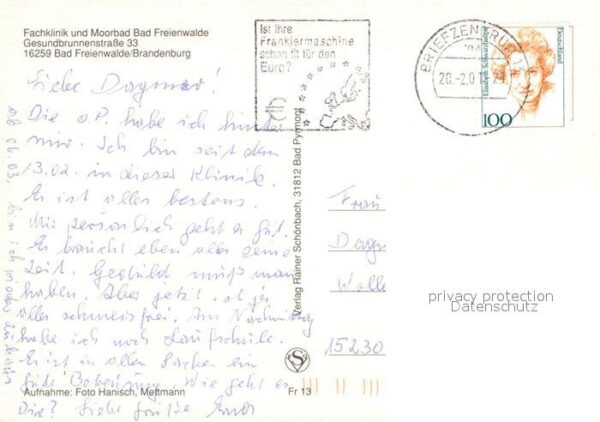 Fachklinik und Moorbad Bad Freienwalde
Gesundbrunnenstraße 33
16259 Bad Freienwalde/Brandenburg
Ist Ihre
Frankiermaschine
schon fit für den
Euro?
BRIEFZENTRUM
20.-2.0
Elisabeth Schwarzhaupt
Deutschland
100
Liebe Dagmar!
Die o.P. habe ich hinter
mir. Ich bin seit dem
13.02. in dieser Klinik.
Es ist alles bestens.
Mir persönlich geht es gut.
Es braucht eben alles seine
Zeit. Geduld muß man
haben. Aber jetzt ist ja
alles schmerzfrei. Am Nachmittag
habe ich noch Laufschule.
Es ist in allen Sachen ein
gute Betreuung. Wie geht es
Dir? Liebe Grüße
ab 06.03. bin ich wieder zuhause
Verlag Rainer Schönbach, 31812 Bad Pyrmont
Frau
15230
privacy protection
Datenschutz
S
Aufnahme: Foto Hanisch, Mettmann
Fr 13